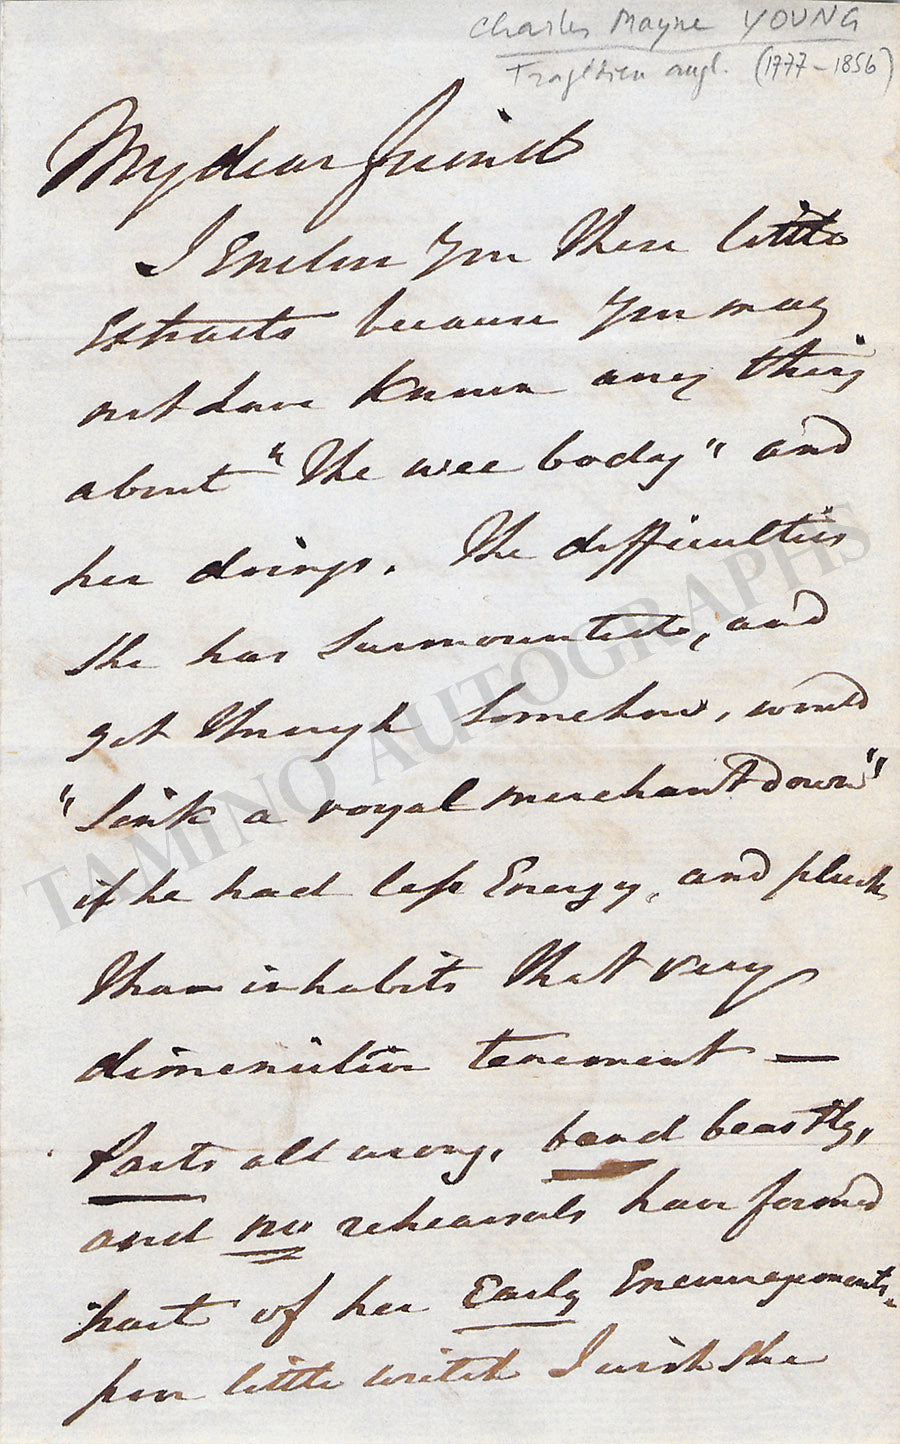 Charles Mayne YOUNG
Tragédien angl. (1777-1856)
My dear friend
I Enclose you these little
Extracts because you may
not have known any thing
about "the wee body" and
her doings. The difficulties
she has surmounted, and
got through somehow, would
"Sink a royal merchant down"
if he had less Energy, and pluck
than inhabits that very
diminutive tenement —
Parts all wrong, band beastly,
and no rehearsals have formed
part of her Early Encouragements.
poor little witch I wish she
TAMINO AUTOGRAPHS